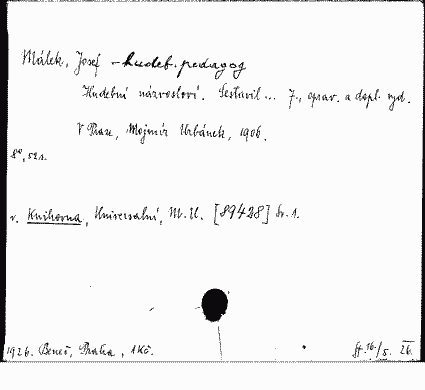 Málek, Josef - hudeb. pedagog
Hudební názvosloví. Sestavil ... 7., oprav. a dopl. vyd.
V Praze, Mojmír Urbánek, 1906.
8°, 52 s.
v. Knihovna, Universalní, M. U. [89428] sv. 1.
1926. Beneš, Praha, 1 Kč. 16./5. 26.